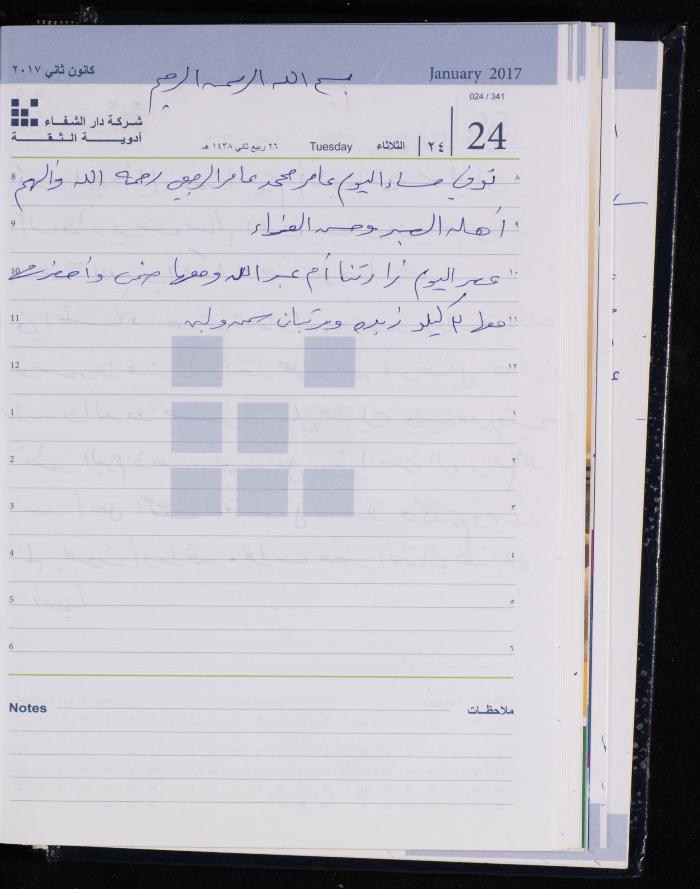 كانون ثاني ٢٠١٧ January 2017
بسم الله الرحمن الرحيم
024 / 341
شركة دار الشفاء
أدوية الثقة
٢٦ ربيع ثاني ١٤٣٨ هـ Tuesday الثلاثاء ٢٤ 24
8 توفي مساء اليوم عامر محمد عامر رحمه الله والهم ٨
9 أهله الصبر وحسن العزاء ٩
10 عصر اليوم زارتنا أم عبد الله ومعها وأحضرت ١٠
11 معها ٣ كيلو زبده ومرتبان سمنه ١١
12 ١٢
1 ١
2 ٢
3 ٣
4 ٤
5 ٥
6 ٦
Notes ملاحظات